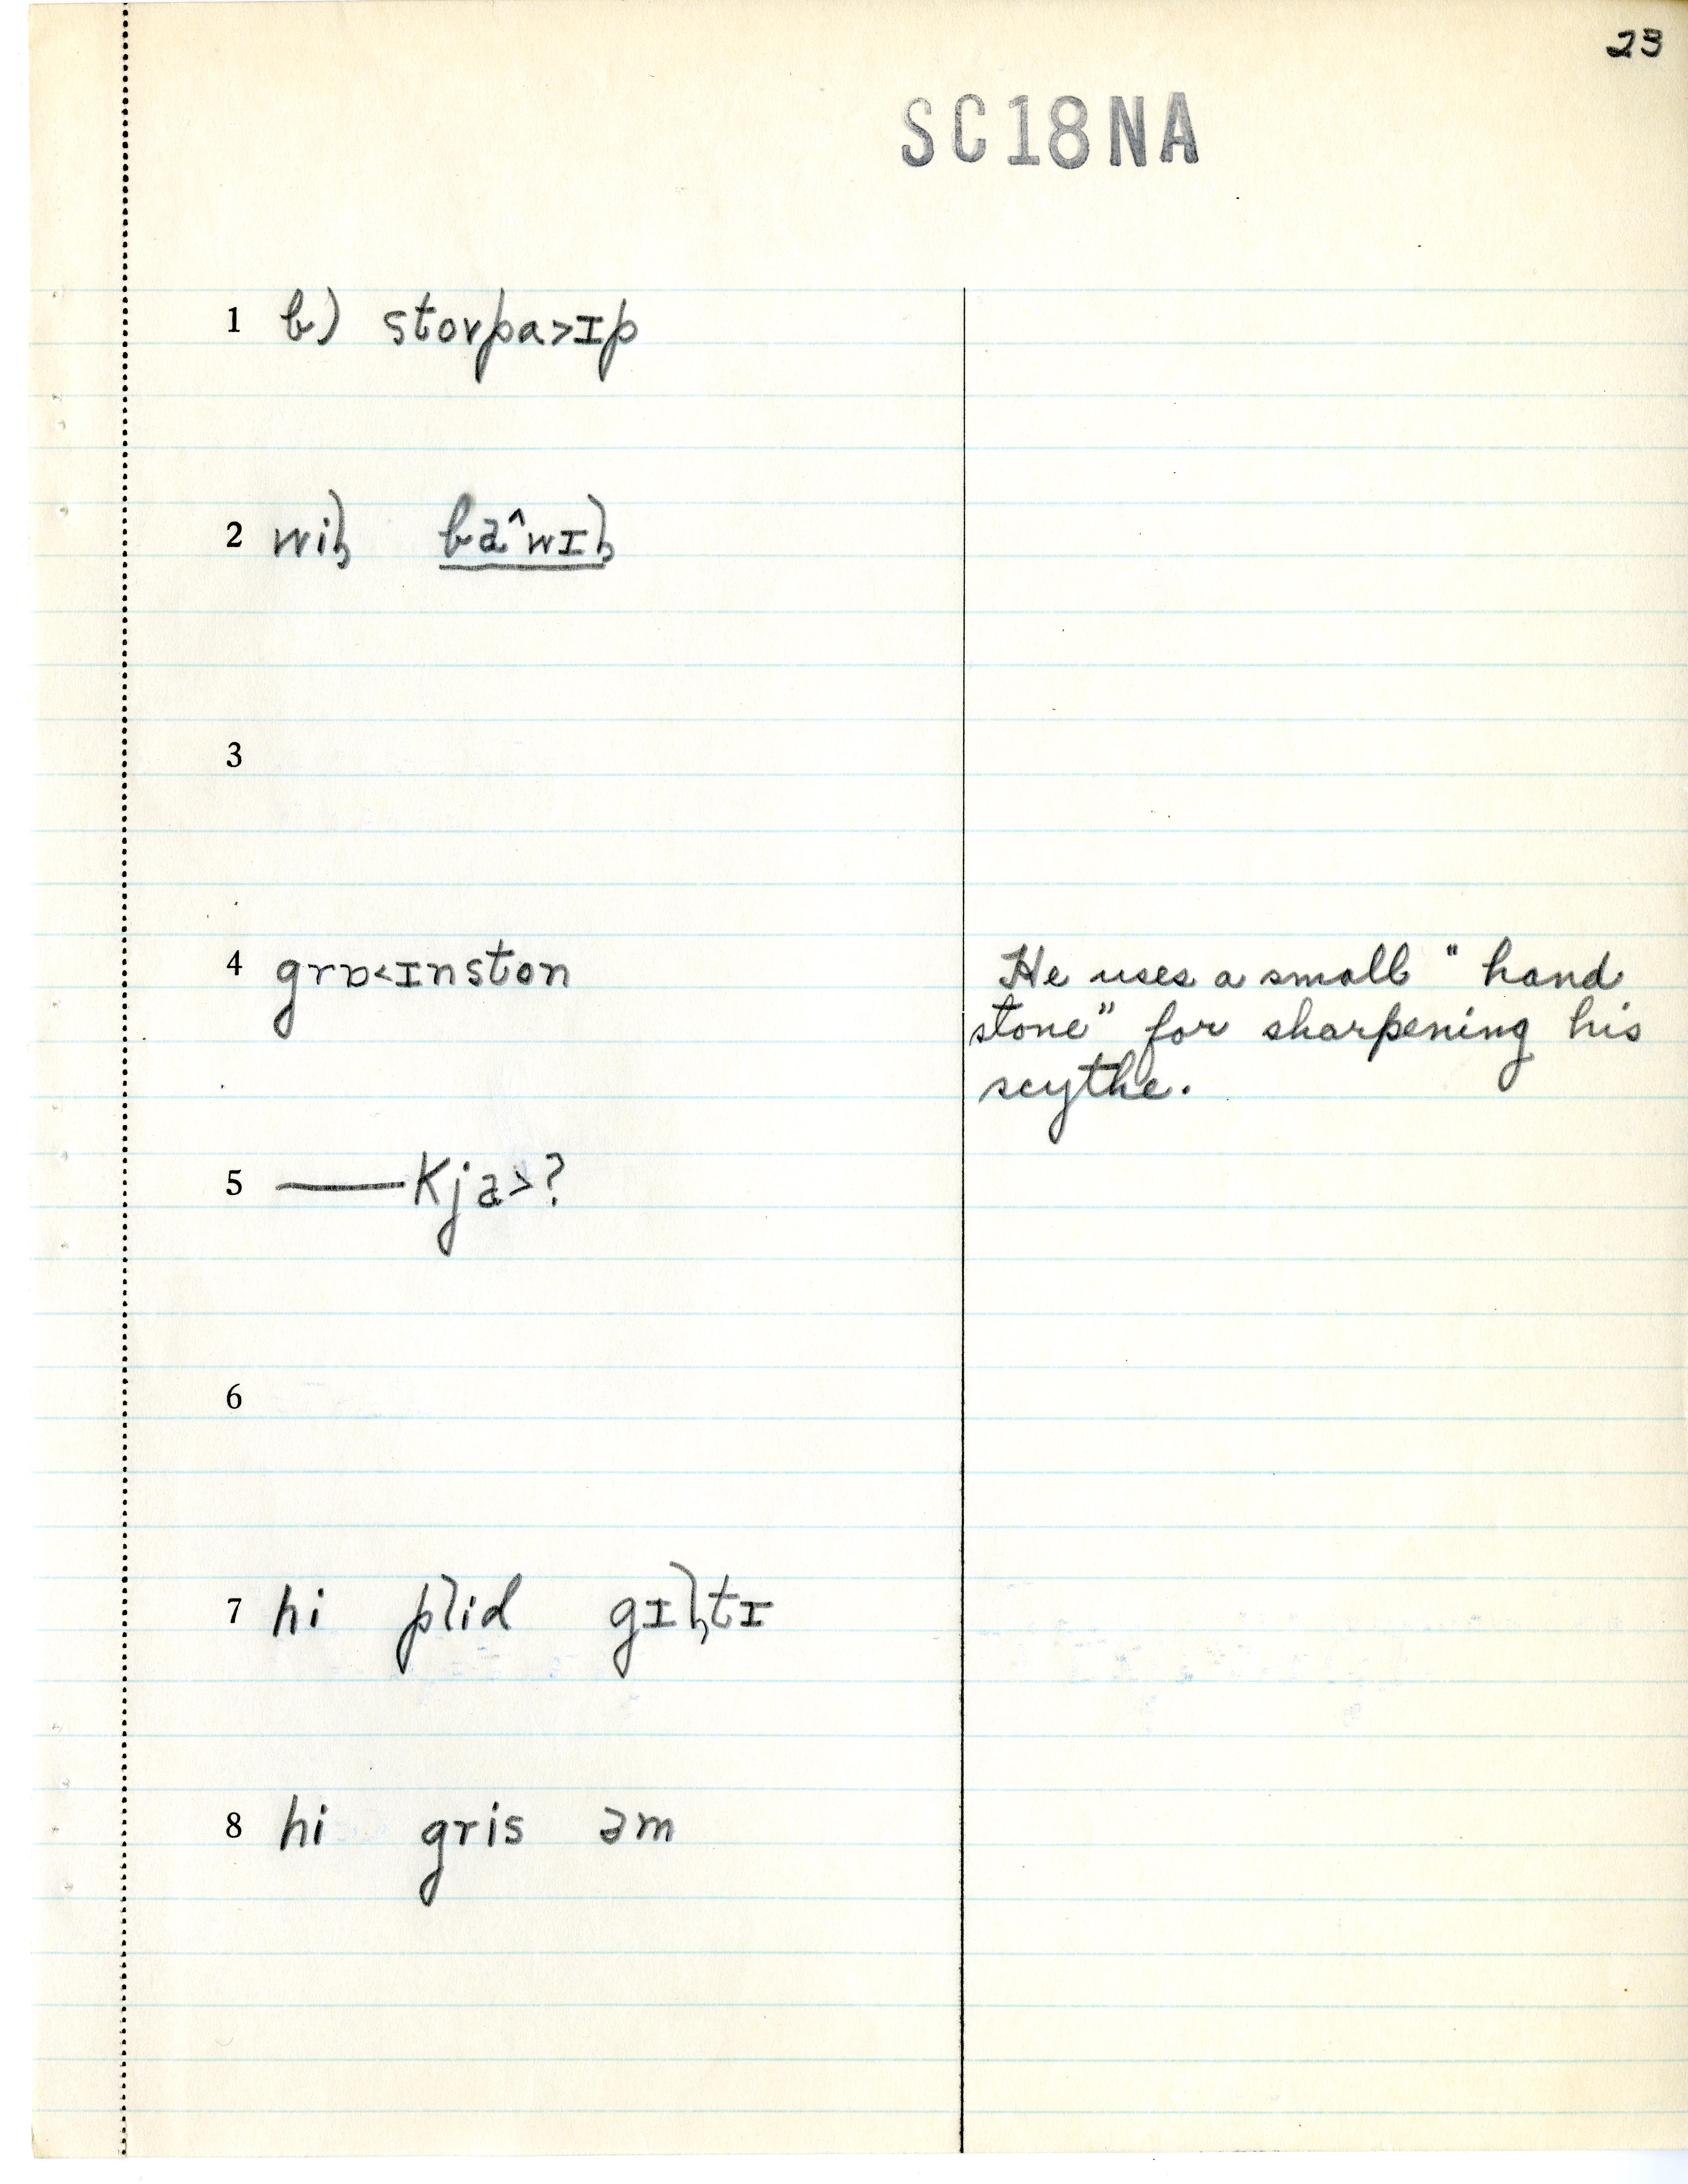 23
SC18NA
1 b) stovpa>ɪp
2 wiɫ̥ ba^wɪɫ̥
3
4 grɒ<ɪnston He uses a small "hand
stone" for sharpening his
scythe.
5 —— Kja>?
6
7 hi plid gɪɫ̥tɪ
8 hi gris əm